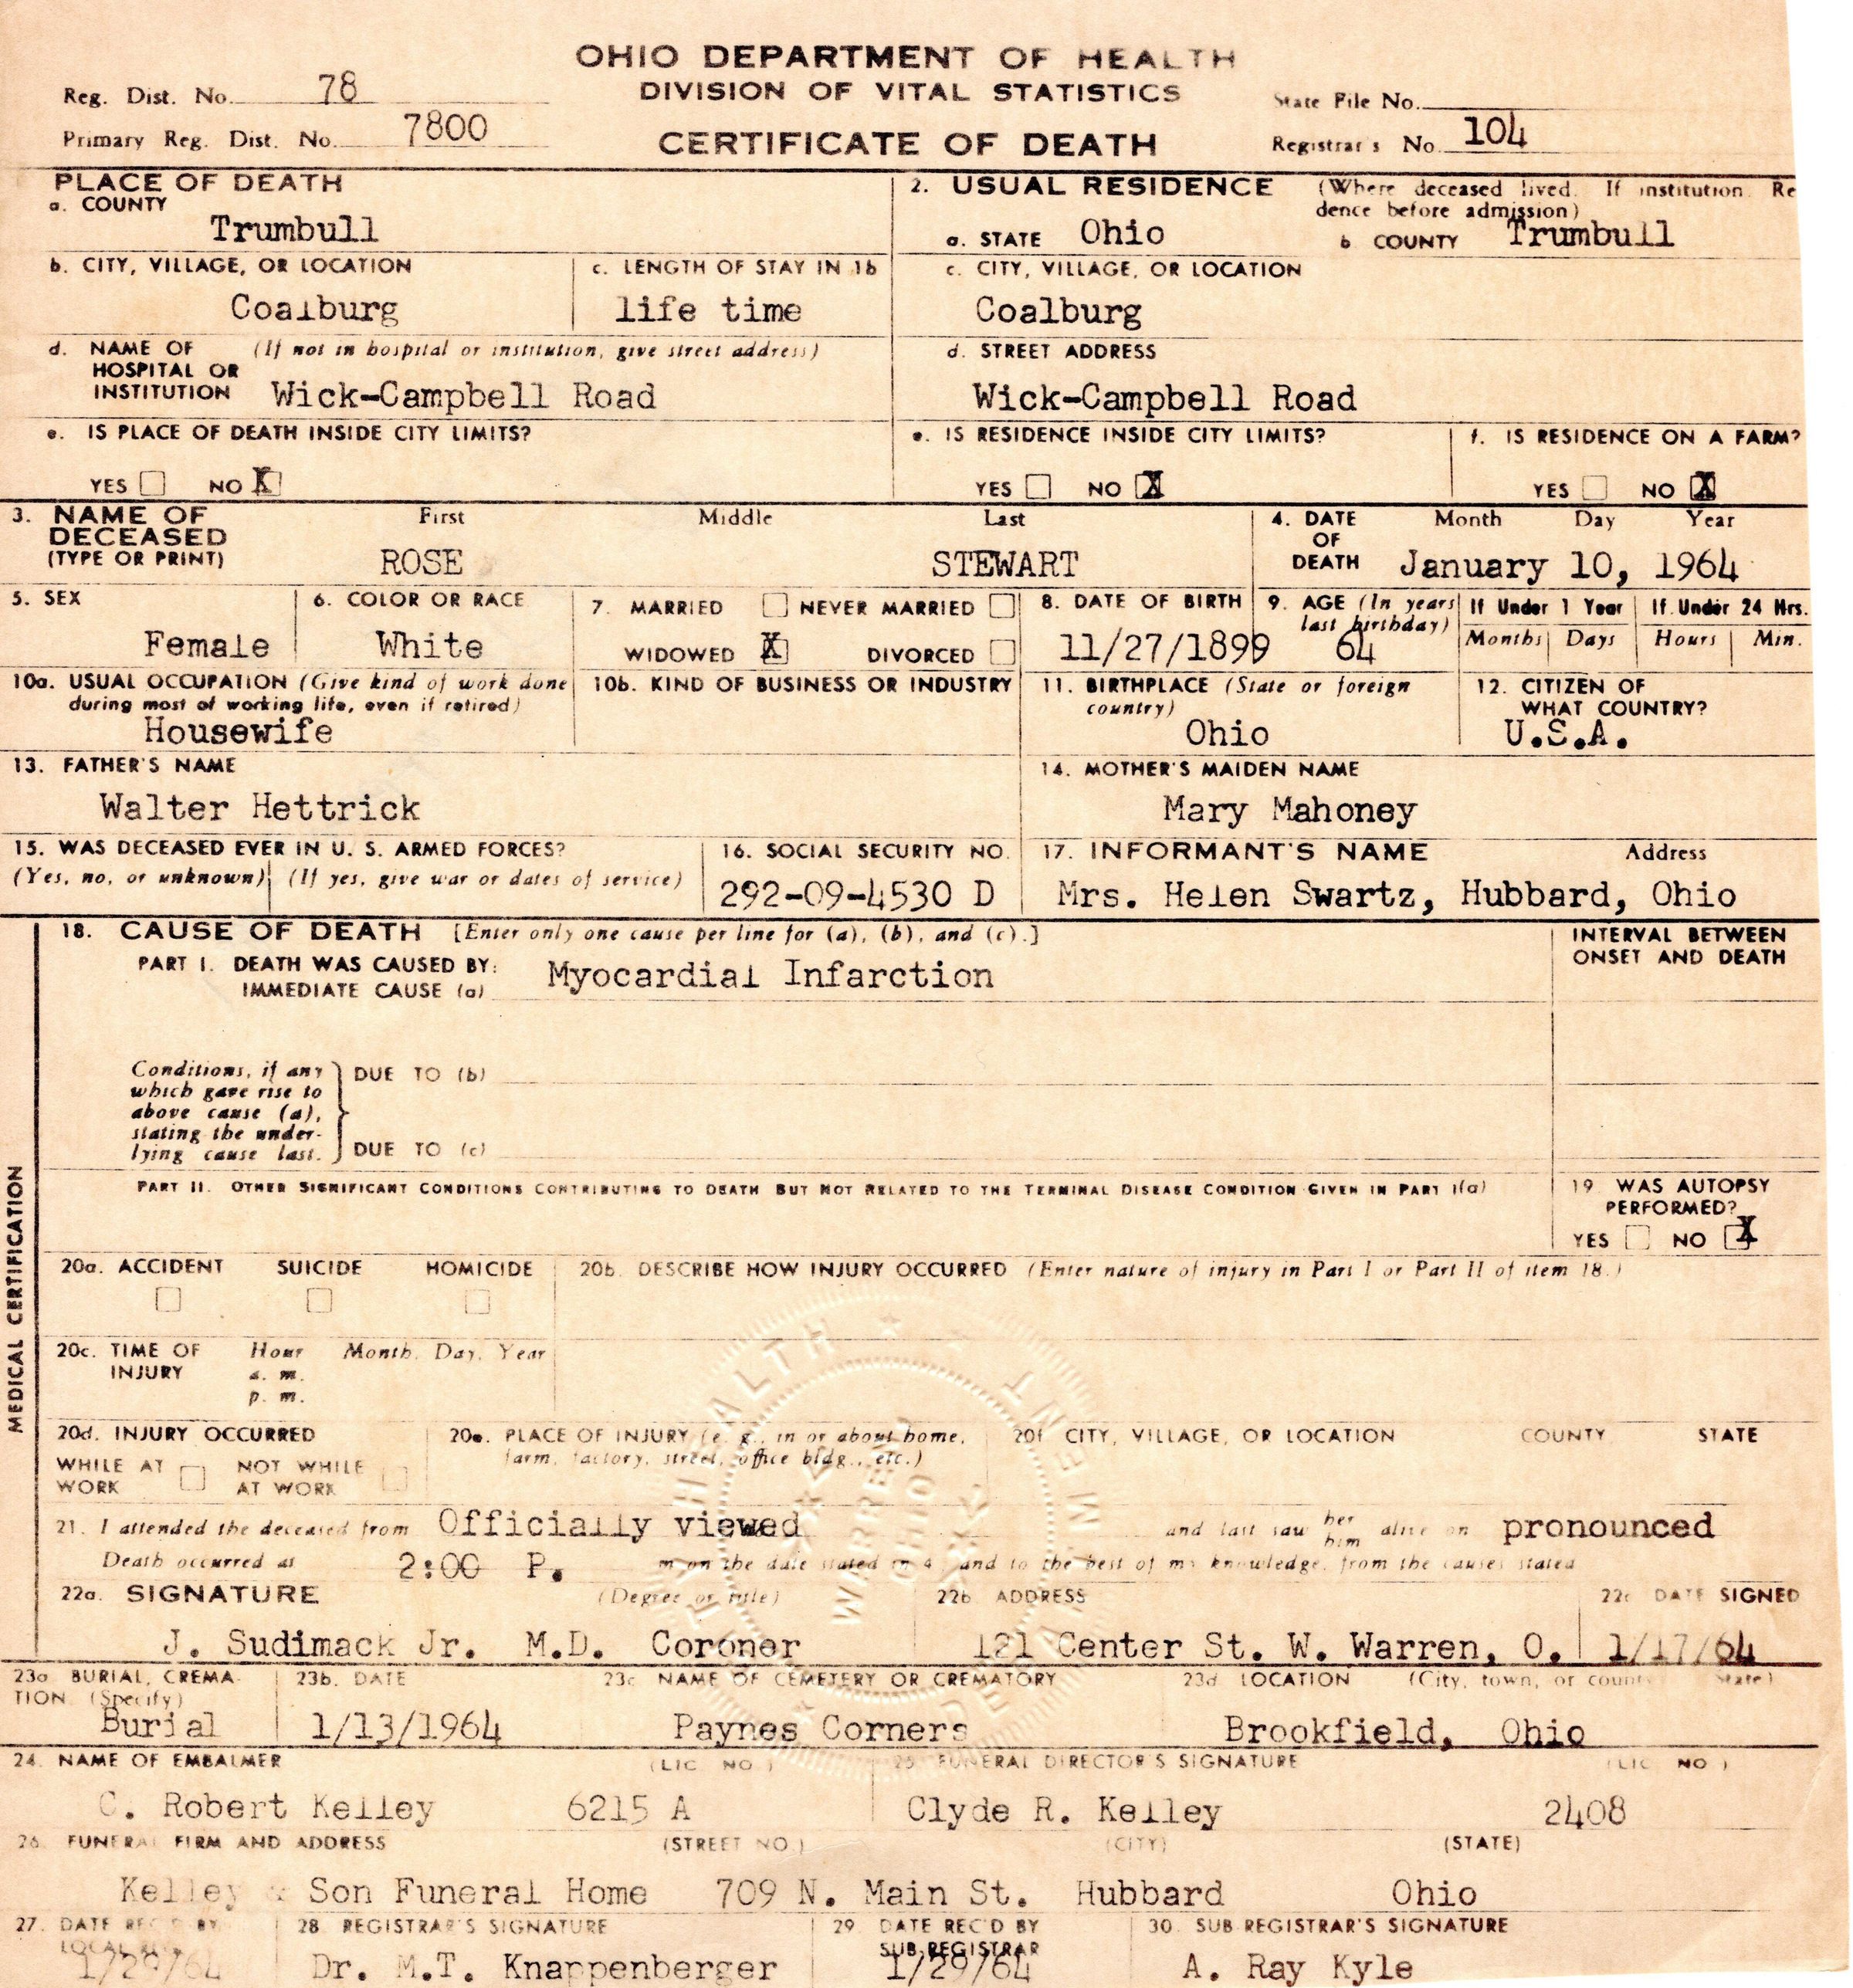 OHIO DEPARTMENT OF HEALTH
DIVISION OF VITAL STATISTICS
CERTIFICATE OF DEATH
Reg. Dist. No. 78
Primary Reg. Dist. No. 7800
State File No.
Registrar's No. 104
PLACE OF DEATH
a. COUNTY
Trumbull
b. CITY, VILLAGE, OR LOCATION
Coalburg
c. LENGTH OF STAY IN 1b
life time
d. NAME OF HOSPITAL OR INSTITUTION (If not in hospital or institution, give street address)
Wick-Campbell Road
e. IS PLACE OF DEATH INSIDE CITY LIMITS?
YES NO X
2. USUAL RESIDENCE (Where deceased lived. If institution. Re
dence before admission)
a. STATE Ohio b COUNTY Trumbull
c. CITY, VILLAGE, OR LOCATION
Coalburg
d. STREET ADDRESS
Wick-Campbell Road
e. IS RESIDENCE INSIDE CITY LIMITS?
YES NO X
f. IS RESIDENCE ON A FARM?
YES NO X
3. NAME OF DECEASED (TYPE OR PRINT)
First Middle Last
ROSE STEWART
4. DATE OF DEATH
Month Day Year
January 10, 1964
5. SEX
Female
6. COLOR OR RACE
White
7. MARRIED NEVER MARRIED
WIDOWED X DIVORCED
8. DATE OF BIRTH
11/27/1899
9. AGE (In years last birthday)
64
If Under 1 Year If Under 24 Hrs.
Months Days Hours Min.
10a. USUAL OCCUPATION (Give kind of work done
during most of working life, even if retired)
Housewife
10b. KIND OF BUSINESS OR INDUSTRY
11. BIRTHPLACE (State or foreign country)
Ohio
12. CITIZEN OF WHAT COUNTRY?
U.S.A.
13. FATHER'S NAME
Walter Hettrick
14. MOTHER'S MAIDEN NAME
Mary Mahoney
15. WAS DECEASED EVER IN U. S. ARMED FORCES?
(Yes, no, or unknown) (If yes, give war or dates of service)
16. SOCIAL SECURITY NO.
292-09-4530 D
17. INFORMANT'S NAME Address
Mrs. Helen Swartz, Hubbard, Ohio
MEDICAL CERTIFICATION
18. CAUSE OF DEATH [Enter only one cause per line for (a), (b), and (c).]
INTERVAL BETWEEN
ONSET AND DEATH
PART I. DEATH WAS CAUSED BY:
IMMEDIATE CAUSE (a) Myocardial Infarction
Conditions, if any
which gave rise to
above cause (a),
stating the under-
lying cause last.
DUE TO (b)
DUE TO (c)
PART II. OTHER SIGNIFICANT CONDITIONS CONTRIBUTING TO DEATH BUT NOT RELATED TO THE TERMINAL DISEASE CONDITION GIVEN IN PART I(a)
19 WAS AUTOPSY
PERFORMED?
YES NO X
20a. ACCIDENT SUICIDE HOMICIDE
20b. DESCRIBE HOW INJURY OCCURRED (Enter nature of injury in Part I or Part II of item 18.)
20c. TIME OF INJURY
Hour Month, Day, Year
a. m.
p. m.
20d. INJURY OCCURRED
WHILE AT WORK NOT WHILE AT WORK
20e. PLACE OF INJURY (e. g., in or about home,
farm, factory, street, office bldg., etc.)
20f CITY, VILLAGE, OR LOCATION COUNTY STATE
21. I attended the deceased from Officially viewed and last saw her him alive on pronounced
Death occurred at 2:00 P. m on the date stated in 4 and to the best of my knowledge, from the causes stated
22a. SIGNATURE (Degree or title)
J. Sudimack Jr. M.D. Coroner
22b ADDRESS
121 Center St. W. Warren, O.
22c DATE SIGNED
1/17/64
23a BURIAL, CREMA-
TION (Specify)
Burial
23b. DATE
1/13/1964
23c NAME OF CEMETERY OR CREMATORY
Paynes Corners
23d LOCATION (City, town, or county State)
Brookfield, Ohio
24. NAME OF EMBALMER (LIC. NO.)
C. Robert Kelley 6215 A
25 FUNERAL DIRECTOR'S SIGNATURE (LIC NO)
Clyde R. Kelley 2408
26. FUNERAL FIRM AND ADDRESS (STREET NO.) (CITY) (STATE)
Kelley & Son Funeral Home 709 N. Main St. Hubbard Ohio
27. DATE REC'D BY
LOCAL REG.
1/29/64
28. REGISTRAR'S SIGNATURE
Dr. M.T. Knappenberger
29 DATE REC'D BY
SUB-REGISTRAR
1/29/64
30. SUB-REGISTRAR'S SIGNATURE
A. Ray Kyle
HEALTH DEPARTMENT
WARREN
OHIO